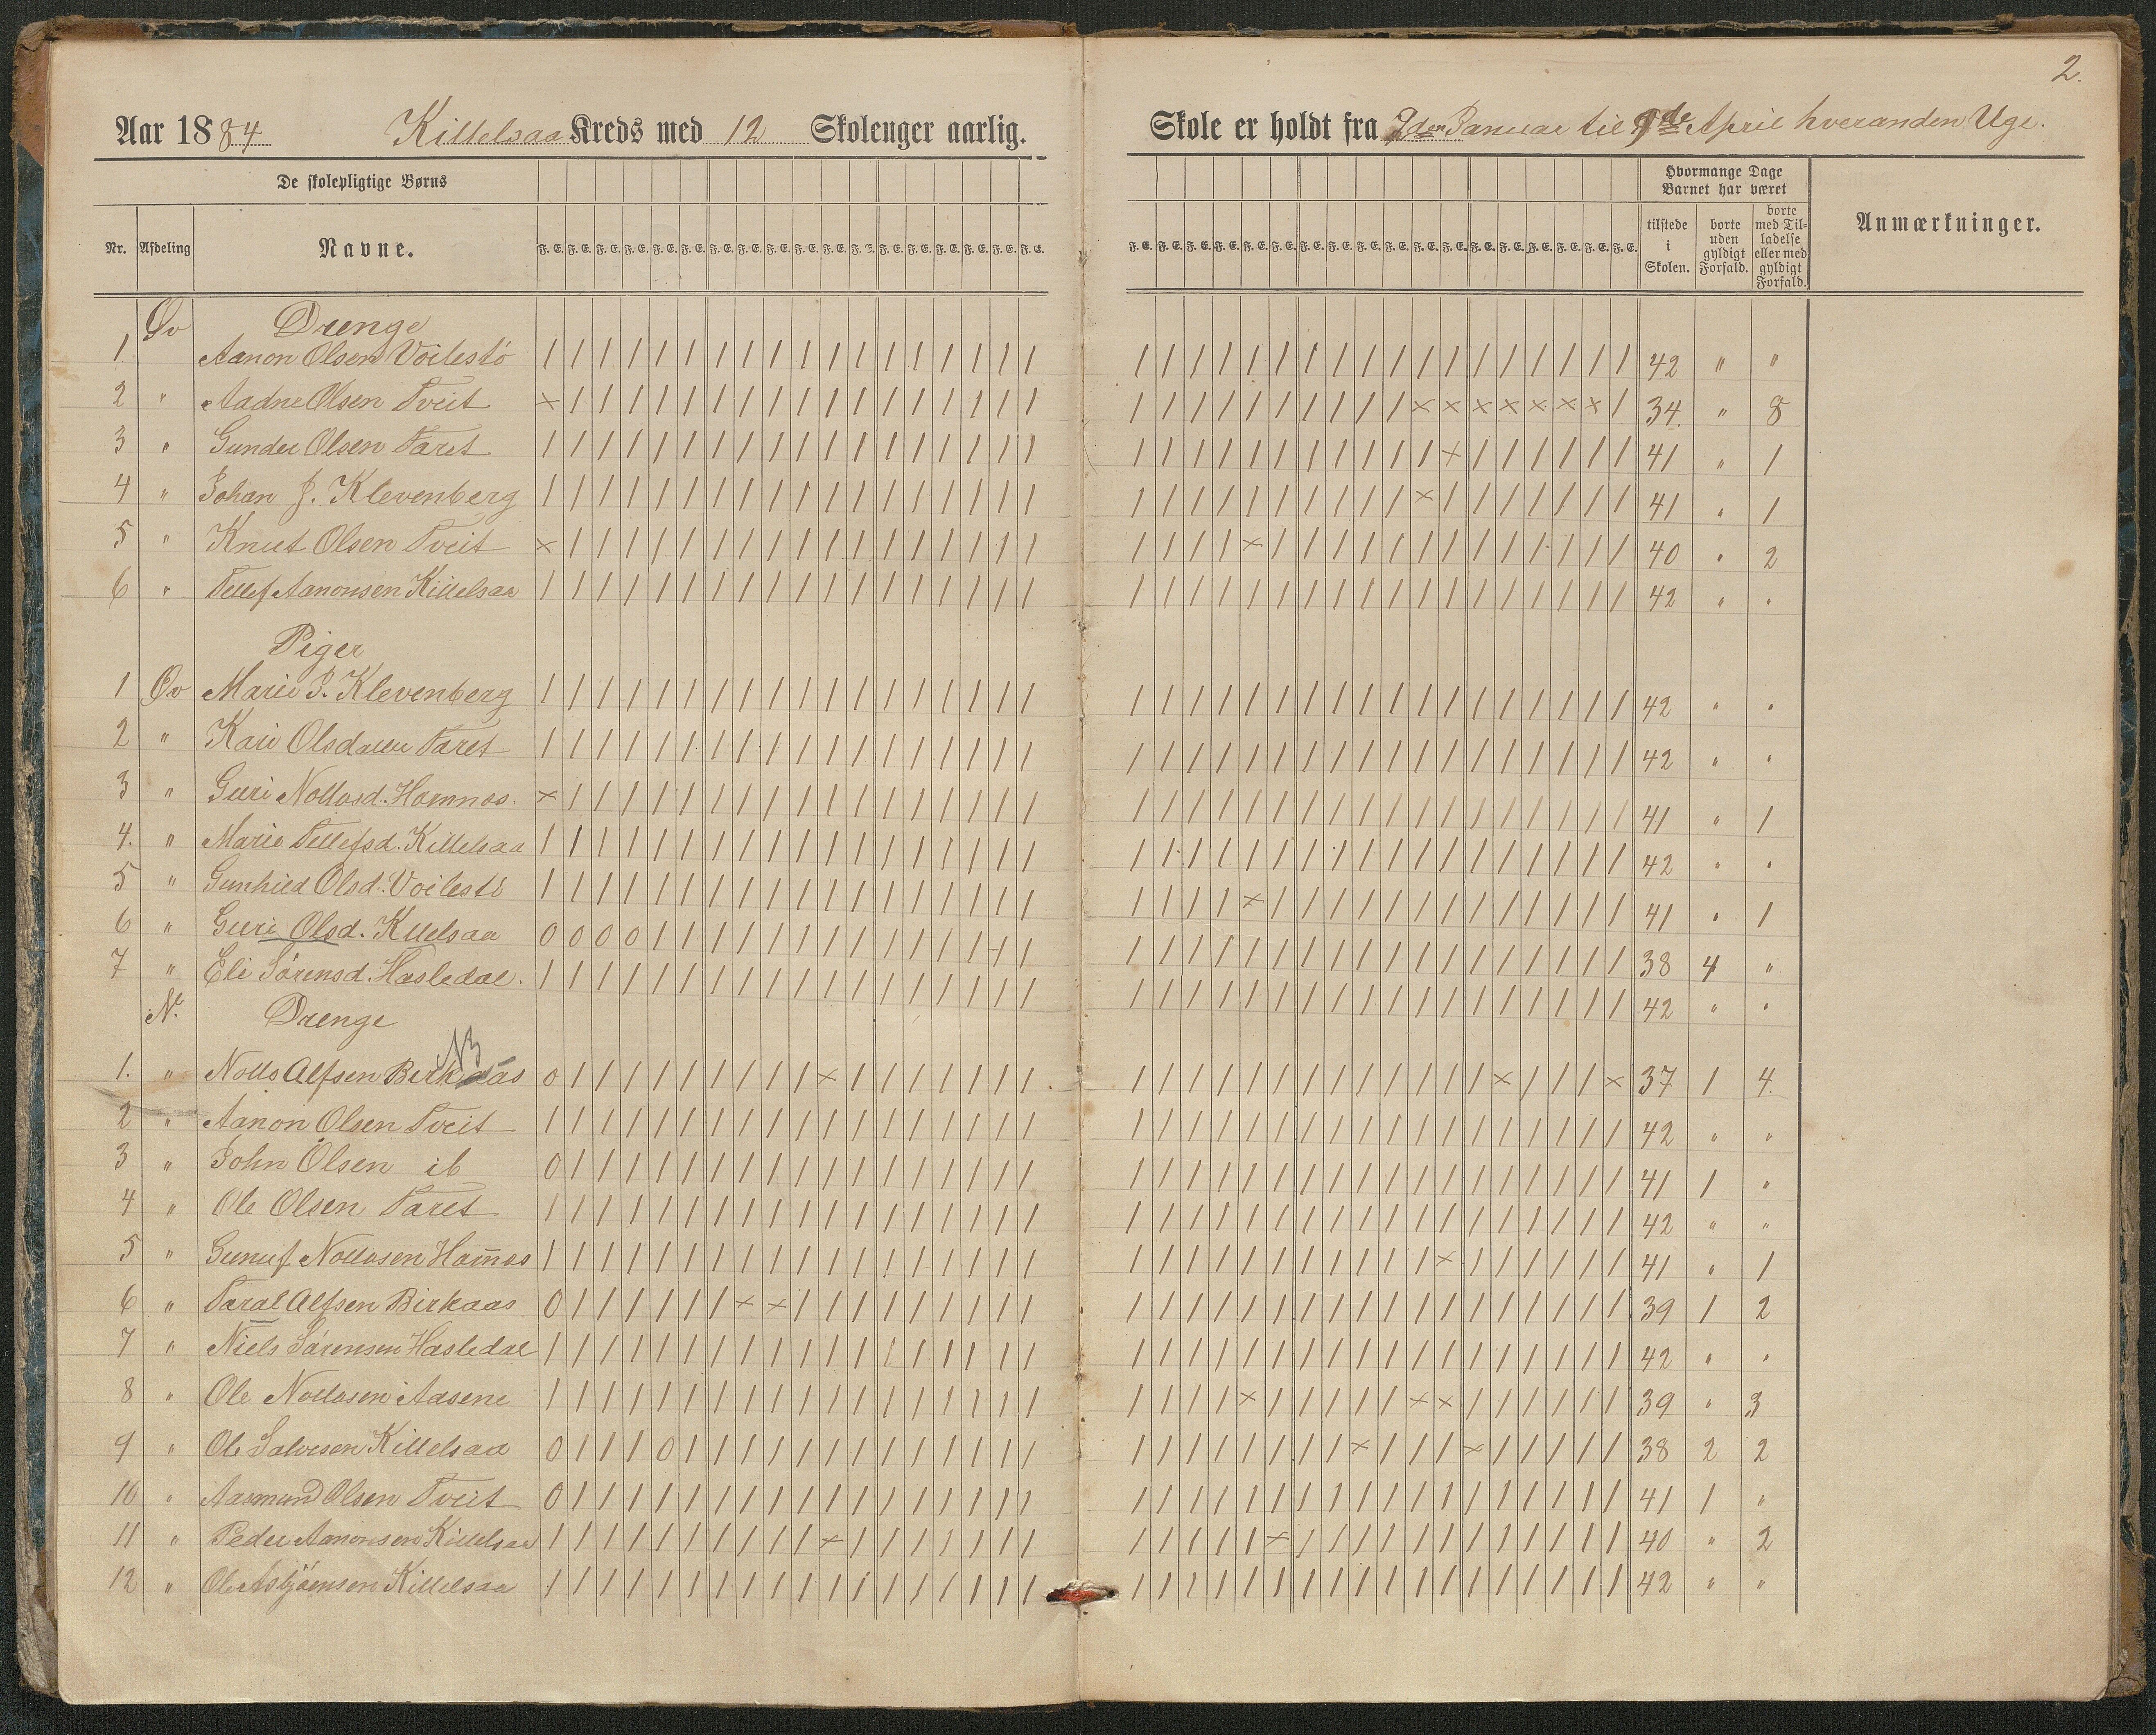 2.
Aar 1884 Killelsaa Kreds med 12 Skoleuger aarlig. Skole er holdt fra 7den Januar til 9de April hveranden Uge.
De skolepligtige Børns
Hvormange Dage Barnet har været
Nr. Afdeling Navne. F. E. F. E. F. E. F. E. F. E. F. E. F. E. F. E. F. E. F. E. F. E. F. E. F. E. F. E. F. E. F. E. F. E. F. E. F. E. F. E. F. E. F. E. F. E. F. E. F. E. F. E. F. E. F. E. F. E. F. E. F. E. F. E. F. E. F. E. F. E. F. E. tilstede i Skolen. borte uden gyldigt Forfald. borte med Tilladelse eller med gyldigt Forfald. Anmærkninger.
Øv Drenge
1 Aanon Olsen Voilestö 42 " "
2 " Aadne Olsen Tveit 34. " 8
3 " Gunder Olsen Taret 41 " 1
4 " Johan J. Klevenberg 41 " 1
5 " Knut Olsen Tveit 40 " 2
6 " Tellef Aanonsen Killelsaa 42 " "
Piger
1 Øv Marie J. Klevenberg 42 " "
2 " Kari Olsdatter Taret 42 " "
3 " Guri Nollosd. Hamnes. 41 " 1
4. " Marie Tellefsd. Killelsaa 42 " "
5 " Gunhild Olsd. Voilestö 41 " 1
6 " Guri Olsd. Kllelsaa 0 0 0 0 38 4 "
7 " Eli Sörensd. Hasledal. 42 " "
N. Drenge
NB
1. " Nolls Alfsen Birkaas 0 37 1 4.
2 " Aanon Olsen Tveit 42 " "
3 " John Olsen ib 0 41 1 "
4 " Ole Olsen Taret 42 " "
5 " Gunuf Nollosen Ham̄es 41 " 1
6 " Taral Alfsen Birkaas 0 39 1 2
7 " Niels Sörensen Hasledal 42 " "
8 " Ole Nollosen Aasene 39 " 3
9 " Ole Salvesen Killelsaa 0 0 38 2 2
10 " Aasmund Olsen Tveit 0 41 1 "
11 " Peder Aanonsen Killelsaa 40 " 2
12 " Ole Asbjörnsen Killelsaa 42 " "